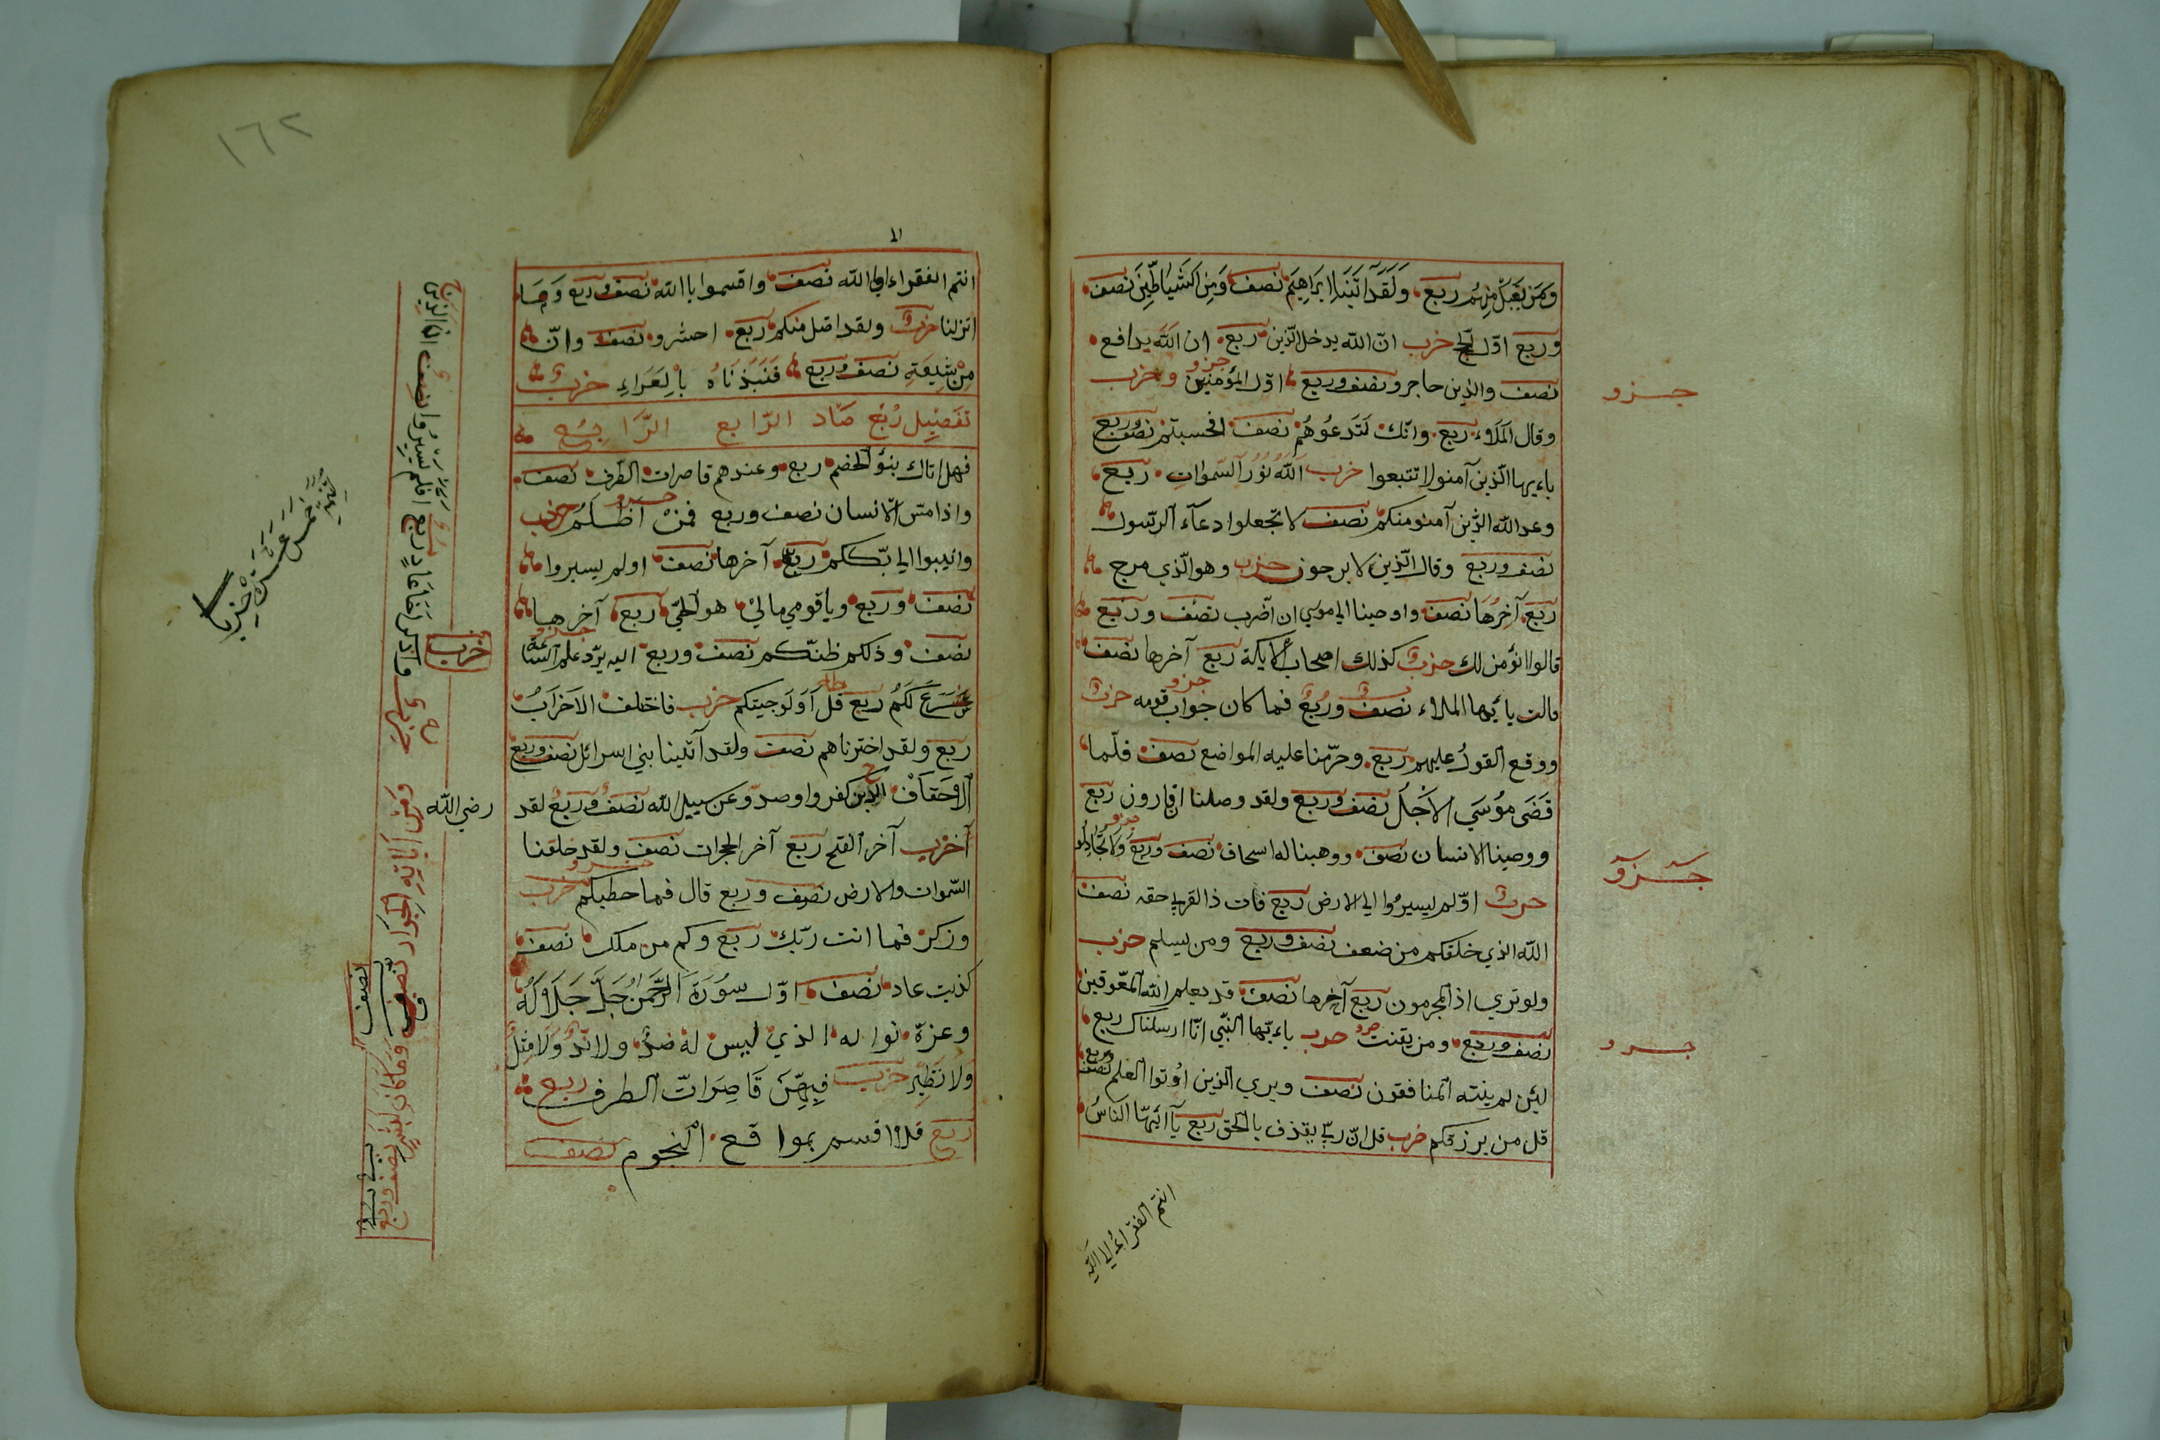 ومن يقل منهم ربع ولقد آتينا ابراهيم نصف ومن الشياطين نصف
وربع اول الحج حزب ان الله يدخل الذين ربع ان الله يدافع
نصف والذين هاجرو نصف وربع اول المؤمنين جزو وحزب
جزو
وقال الملاء ربع وانك لتدعوهم نصف افحسبتم نصف وربع
ياءيها الذين آمنو لا تتبعوا حزب الله نور السموات ربع
وعد الله الذين آمنو منكم نصف لا تجعلوا دعآء الرسول
نصف وربع وقال الذين لا يرجون حزب وهو الذي مرج
ربع آخرها نصف واوحينا الي موسي ان اضرب نصف وربع
قالوا انؤمن لك حزب كذلك اصحاب الايكة ربع آخرها نصف
قالت يا ءيها الملاء نصف وربع فما كان جواب قومه جزو حزب
ووقع القول عليهم ربع وحرمنا عليه المراضع نصف فلما
قضي موسي الاجل نصف وربع ولقد وصلنا ان قارون ربع
ووصينا الانسان نصف ووهبنا له اسحاق نصف وربع ولا تجادلو جزو
جزو
حزب اولم يسيروا الي الارض ربع فات ذا القربي حقه نصف
الله الذي خلقكم من ضعف نصف وربع ومن يسلم حزب
ولو تري اذ المجرمون ربع آخرها نصف قد يعلم الله المعوقين
نصف وربع ومن يقنت جزو حزب ياءيها النبي انا ارسلناك ربع
جزو
لئن لم ينته المنافقون نصف ويري الذين اوتوا العلم نصف وربع
قل من يرزقكم حزب قل ان ربي يقذف بالحق ربع يآ ايها الناس
انتم الفقراء الا الله
١٦٢
انتم الفقراء الي الله نصف واقسموا باالله نصف وربع وما
انزلنا حزب ولقد اضل منكم ربع احشرو نصف وان
من شيعته نصف وربع فنبذناه باالعراء حزب
تفصيل ربع صاد الرابع الرابع
فهل اتاك بنؤ الخصم ربع وعندهم قاصرات الطرف نصف
واذا مس الانسان نصف وربع فمن اظلم جزو حزب
وانيبوا الي ربكم ربع آخرها نصف اولم يسيروا
نصف وربع ويا قومي مالي هو الحي ربع آخرها
نصف وذلكم ظنكم نصف وربع اليه يرد علم الساعة جزو
شرع لكم ربع قل اولو جيتكم حزب فاختلف الاحزاب
ربع ولقد اخترناهم نصف ولقد آتينا بني اسرائل نصف وربع
الاحقاف الذين كفروا وصدو عن سبيل الله نصف وربع لقد
آخزب آخر الفتح ربع آخر الحجرات نصف ولقد خلقنا
السموات والارض نصف وربع قال فما خطبكم جزو حزب
وذكر فما انت ربك ربع وكم من ملك نصف
كذبت عاد نصف اول سورة الرحمن جل جلاله
وعزة نواله الذي ليس له ضد ولا ند ولا مثل
ولا نظير حزب فيهن قاصرات الطرف ربع
ربع فلا اقسم بمواقع النجوم نصف
افلم يسيروا نصف ان الذين
واذكر اخا عاد ربع
حزب
رضي الله
ومن آياته الجوار نصف وما كان لبشر نصف وربع
نصف
خمس عشر حزبا